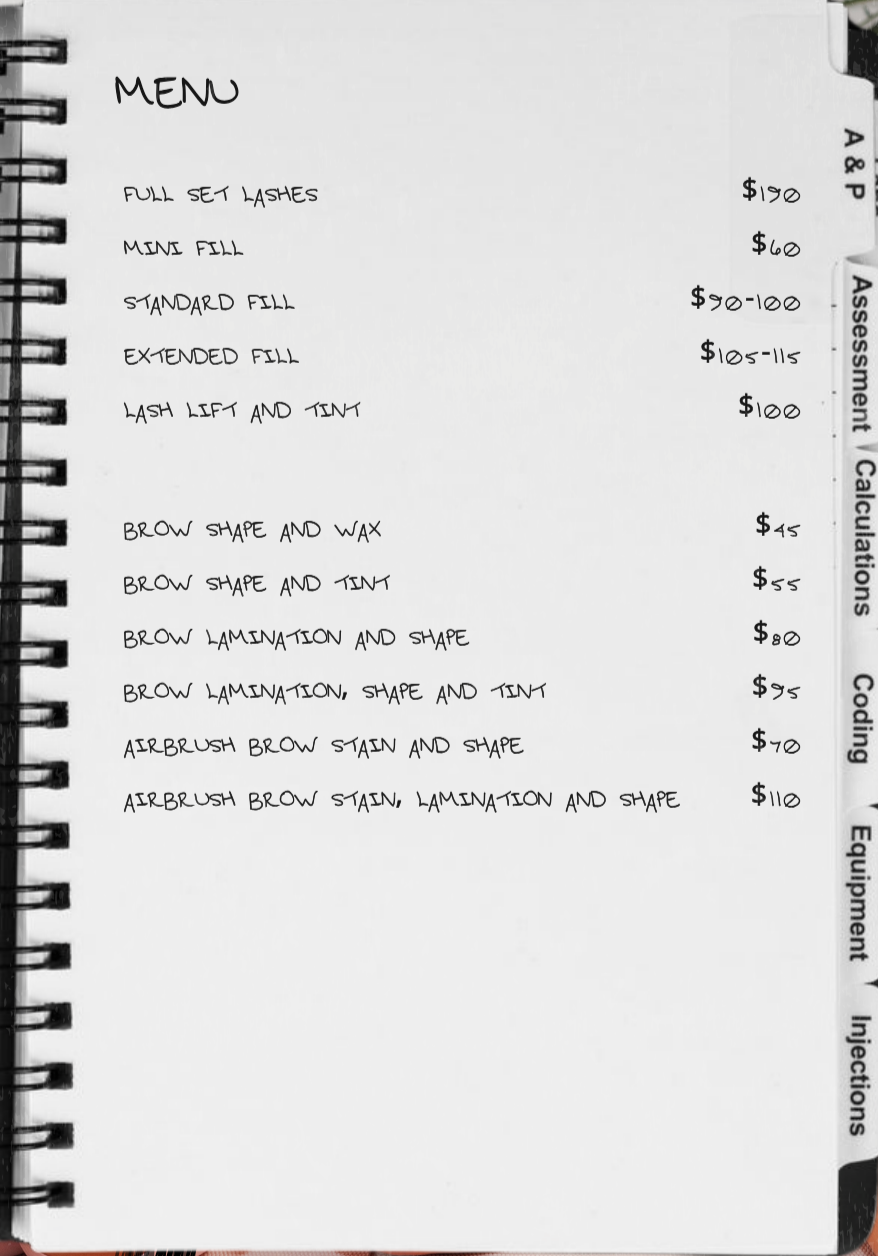 MENU
FULL SET LASHES $190
MINI FILL $60
STANDARD FILL $90-100
EXTENDED FILL $105-115
LASH LIFT AND TINT $100
BROW SHAPE AND WAX $45
BROW SHAPE AND TINT $55
BROW LAMINATION AND SHAPE $80
BROW LAMINATION, SHAPE AND TINT $95
AIRBRUSH BROW STAIN AND SHAPE $70
AIRBRUSH BROW STAIN, LAMINATION AND SHAPE $110
A & P
Assessment
Calculations
Coding
Equipment
Injections